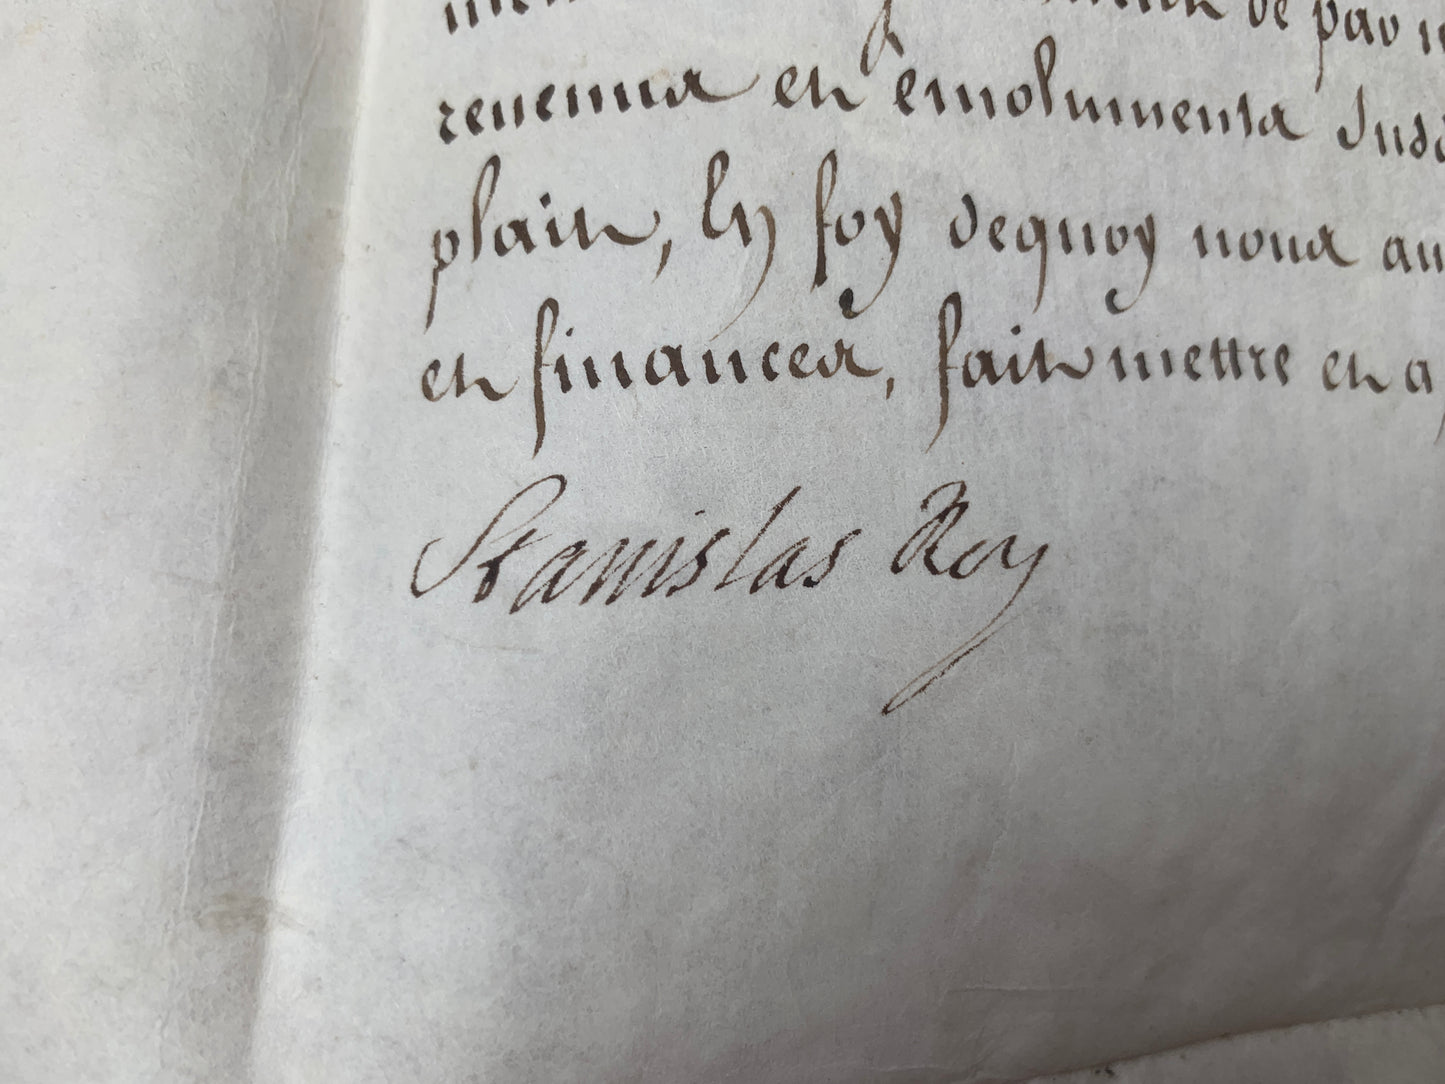 de par
revenus et emolumens Jusq
plait, En foy dequoy nous au
et finances, fait mettre et a
Stanislas Roy